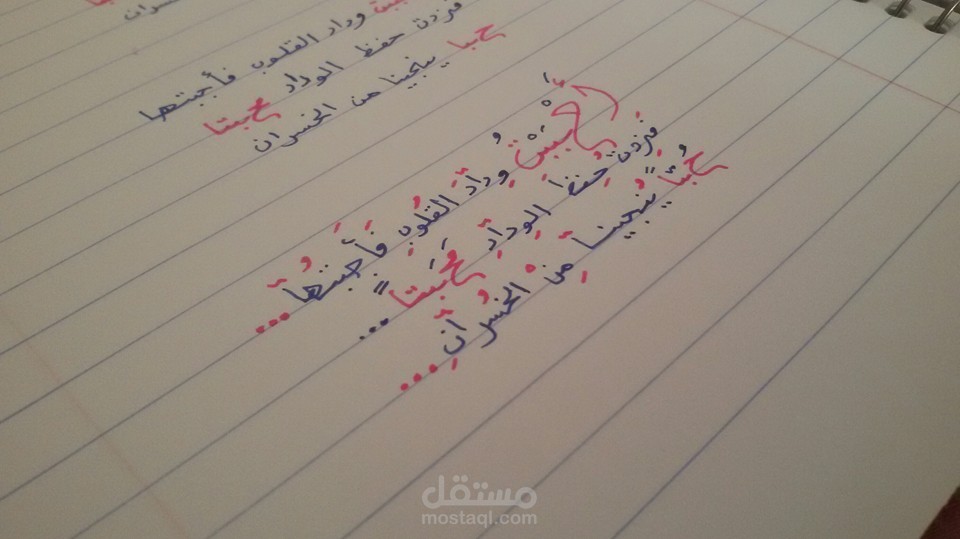 وداد القلوب فأجبتها
فزدت حفظ الوداد محبتا
حبا ينجينا من الخسران
أحْبَبْتُ وِدَادَ القُلُوبِ فَأَجَبْتُهَا...
فزدت حِفْظَ الوِدَادِ مَحَبَّتًا...
حُبًّا يُنجينا مِنَ الخُسْرَانِ...
مستقل
mostaql.com